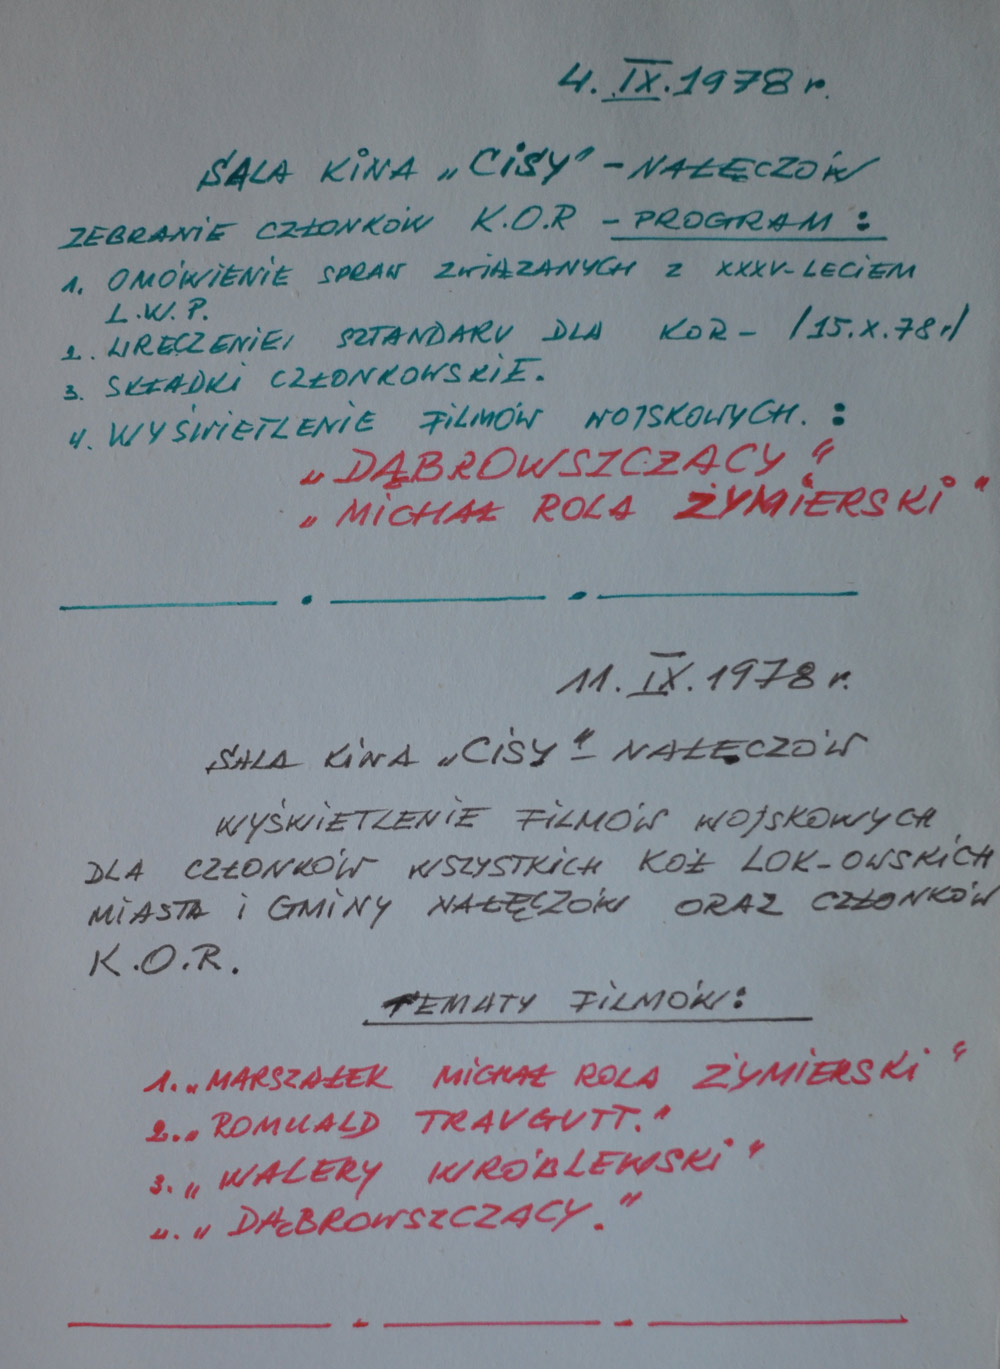 4. IX. 1978 r.
SALA KINA „CISY" – NAŁĘCZÓW
ZEBRANIE CZŁONKÓW K.O.R – PROGRAM :
1. OMÓWIENIE SPRAW ZWIĄZANYCH Z XXXV-LECIEM
L.W.P.
2. WRĘCZENIE SZTANDARU DLA KOR – /15.X.78 r/
3. SKŁADKI CZŁONKOWSKIE.
4. WYŚWIETLENIE FILMÓW WOJSKOWYCH. :
„DĄBROWSZCZACY"
„MICHAŁ ROLA ŻYMIERSKI"
11. IX. 1978 r.
SALA KINA „CISY" – NAŁĘCZÓW
WYŚWIETLENIE FILMÓW WOJSKOWYCH
DLA CZŁONKÓW WSZYSTKICH KÓŁ LOK-OWSKICH
MIASTA i GMINY NAŁĘCZÓW ORAZ CZŁONKÓW
K.O.R.
TEMATY FILMÓW:
1. „MARSZAŁEK MICHAŁ ROLA ŻYMIERSKI"
2. „ROMUALD TRAUGUTT."
3. „WALERY WRÓBLEWSKI"
4. „DĄBROWSZCZACY."